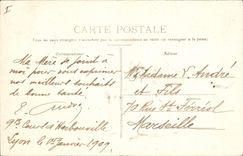 CARTE POSTALE
Correspondance
Ma Mère se joint à
moi pour vous exprimer
nos meilleurs souhaits
de bonne santé.
9 Cours d'Herbouville
Lyon le 1er Janvier 1909
Madame V. André
et Fils
70 Rue St Ferréol
Marseille